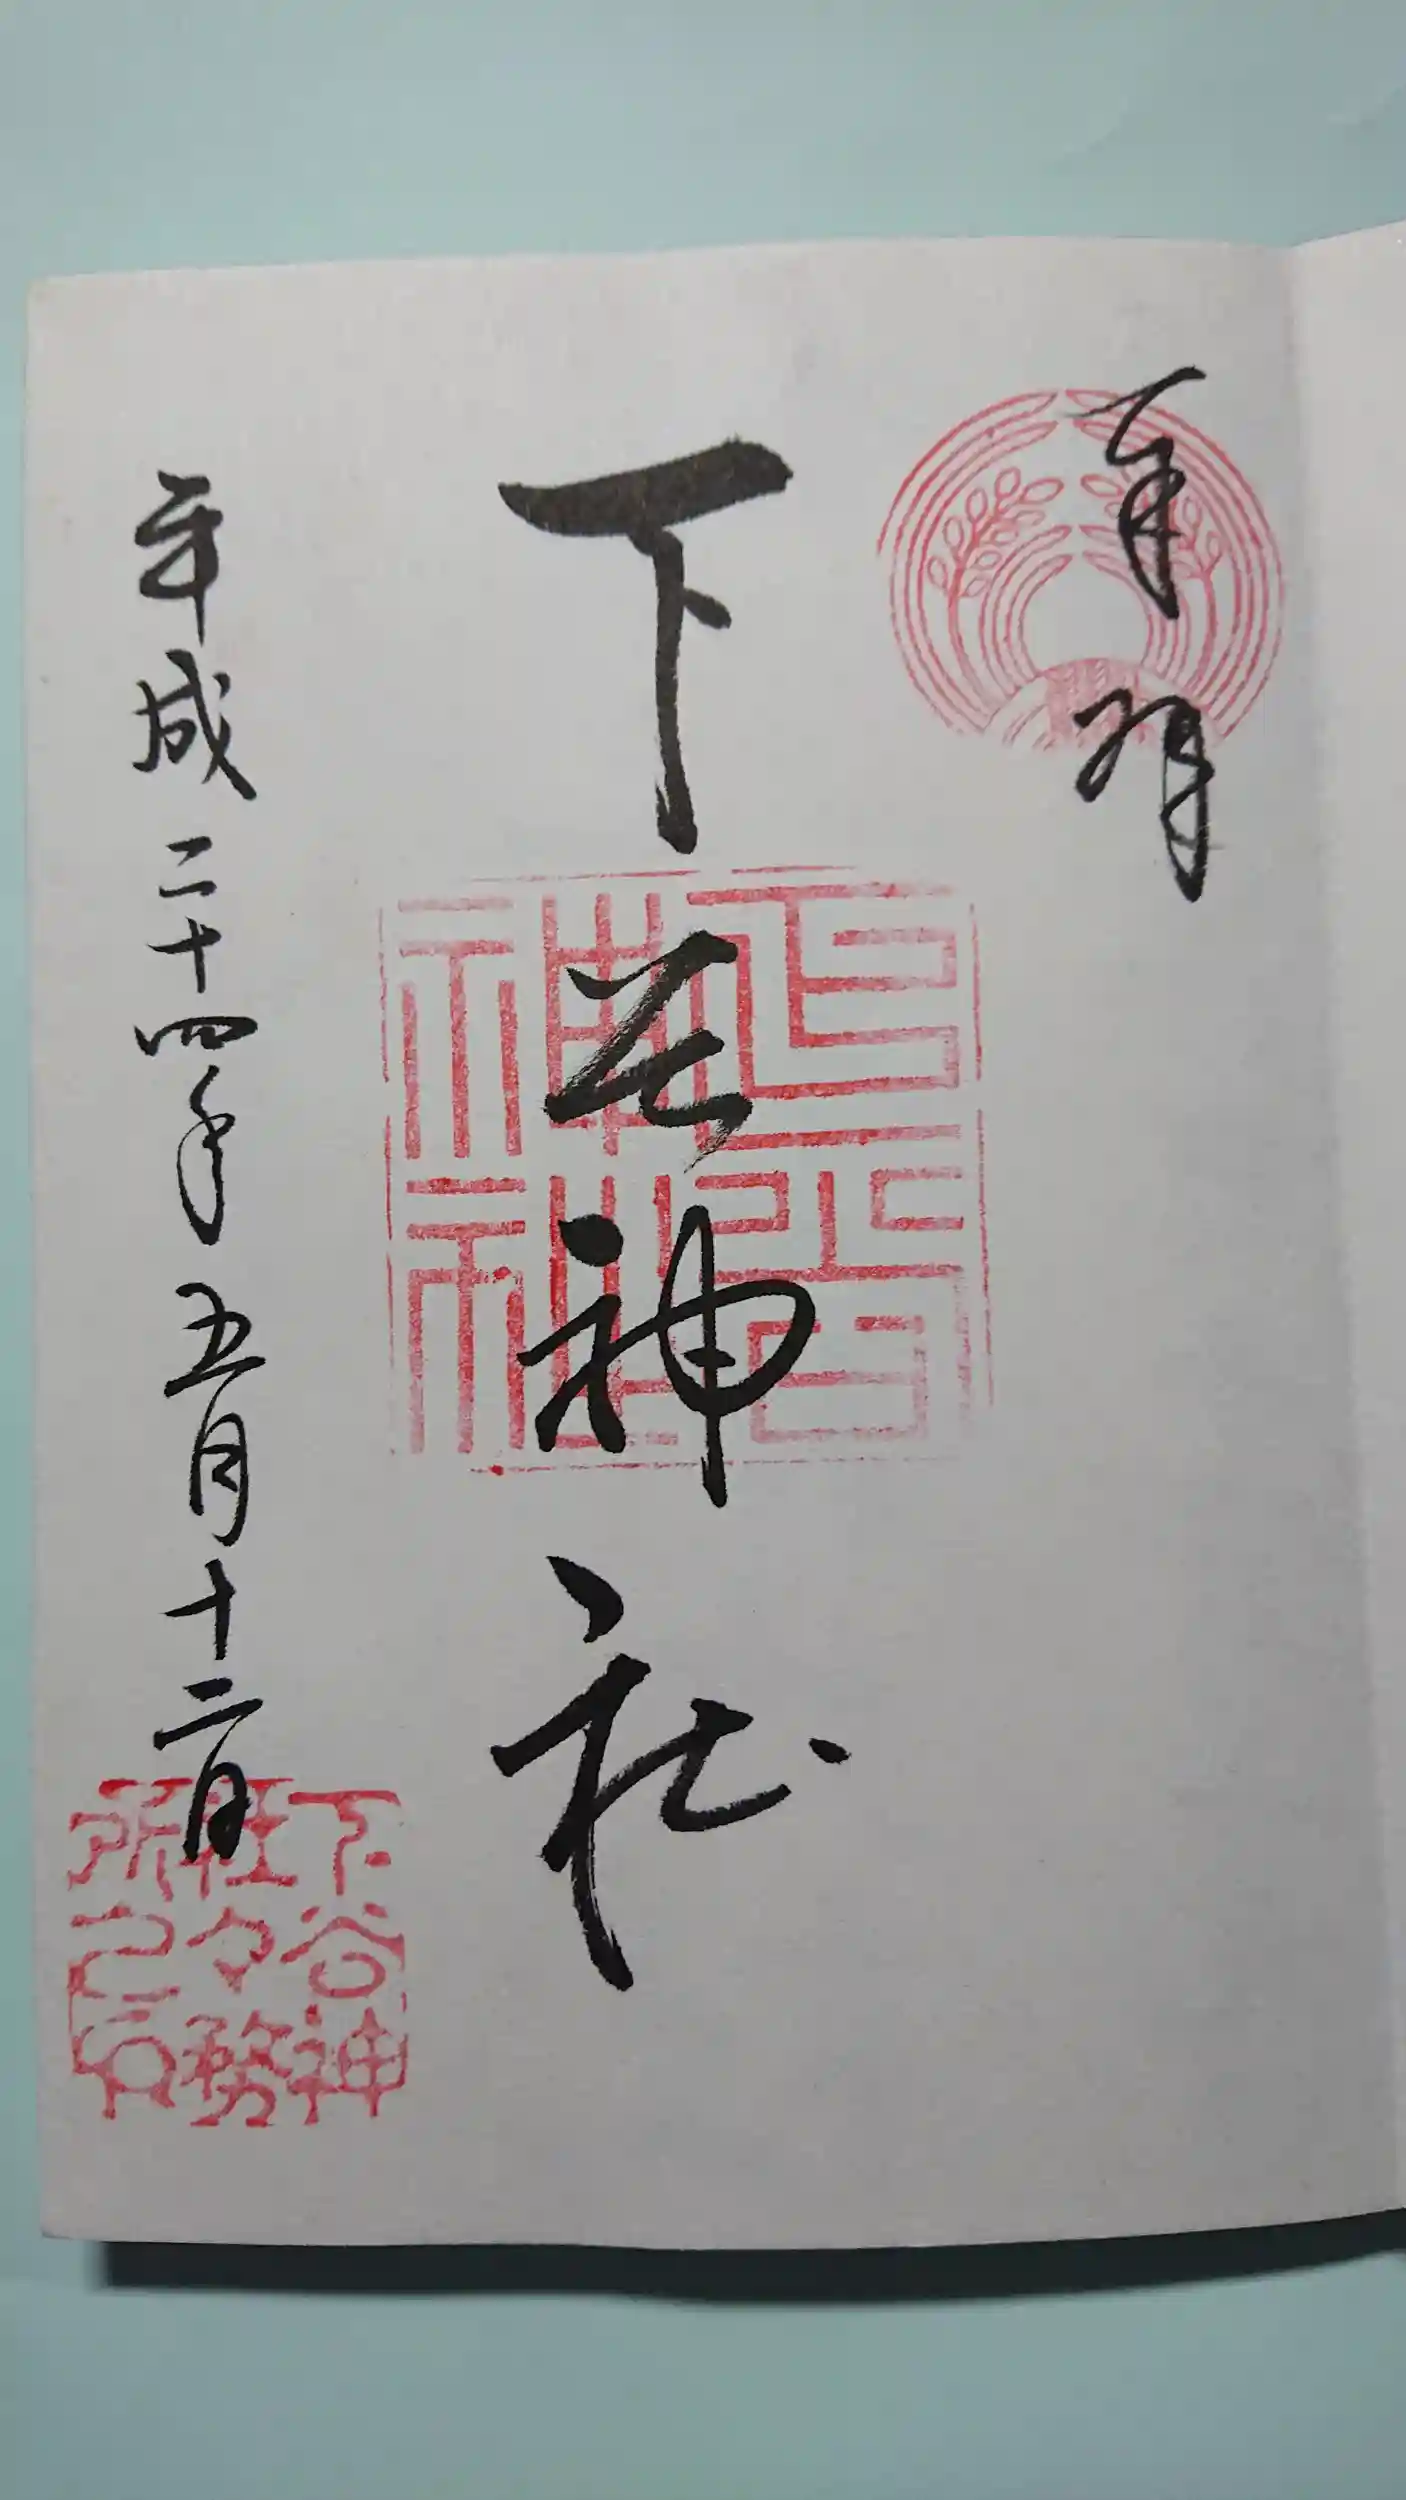 下谷神社
下谷神社
平成二十四年五月十二日
下谷神
社々務
所之印